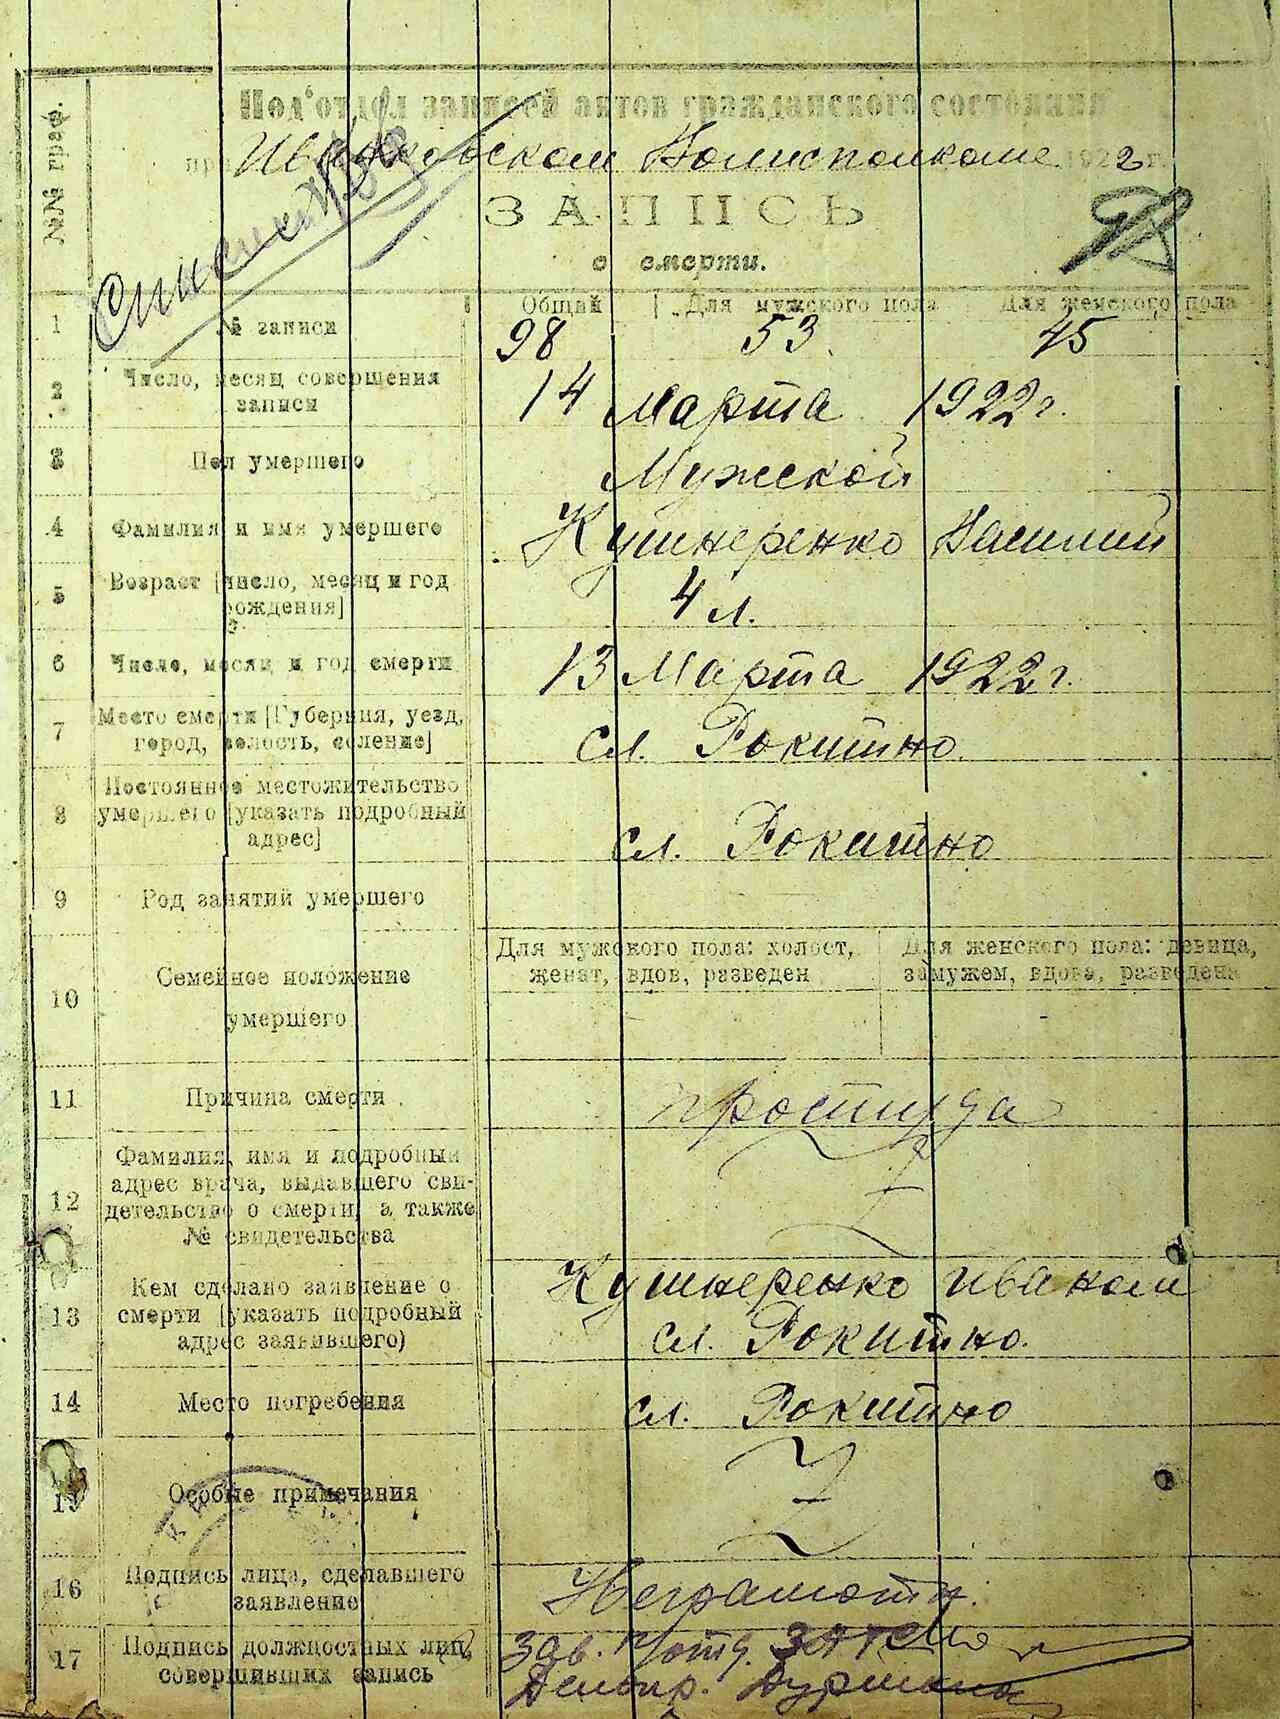 №№ граф.
Под'отдел записей актов гражданского состояния
при Ивановском Волисполкоме 1922 г.
ЗАПИСЬ
о смерти.
98
Общий Для мужского пола Для женского пола
1 № записи 98 53 45
2 Число, месяц совершения записи 14 Марта 1922 г.
3 Пол умершего Мужской
4 Фамилия и имя умершего Кушнеренко Василий
5 Возраст [число, месяц и год рождения] 4 л.
6 Число, месяц и год смерти 13 Марта 1922 г.
7 Место смерти [Губерния, уезд, город, волость, селение] сл. Рокитно.
8 Постоянное местожительство умершего [указать подробный адрес] сл. Рокитно
9 Род занятий умершего
10 Семейное положение умершего
Для мужского пола: холост, женат, вдов, разведен
Для женского пола: девица, замужем, вдова, разведена
11 Причина смерти простуда
12 Фамилия, имя и подробный адрес врача, выдавшего свидетельство о смерти, а также № свидетельства
13 Кем сделано заявление о смерти [указать подробный адрес заявившего) Кушнеренко Иваном
сл. Рокитно.
14 Место погребения сл. Рокитно
15 Особые примечания
16 Подпись лица, сделавшего заявление Неграмотн.
17 Подпись должностных лиц, совершивших запись Зав. п/отд.
Делопр.